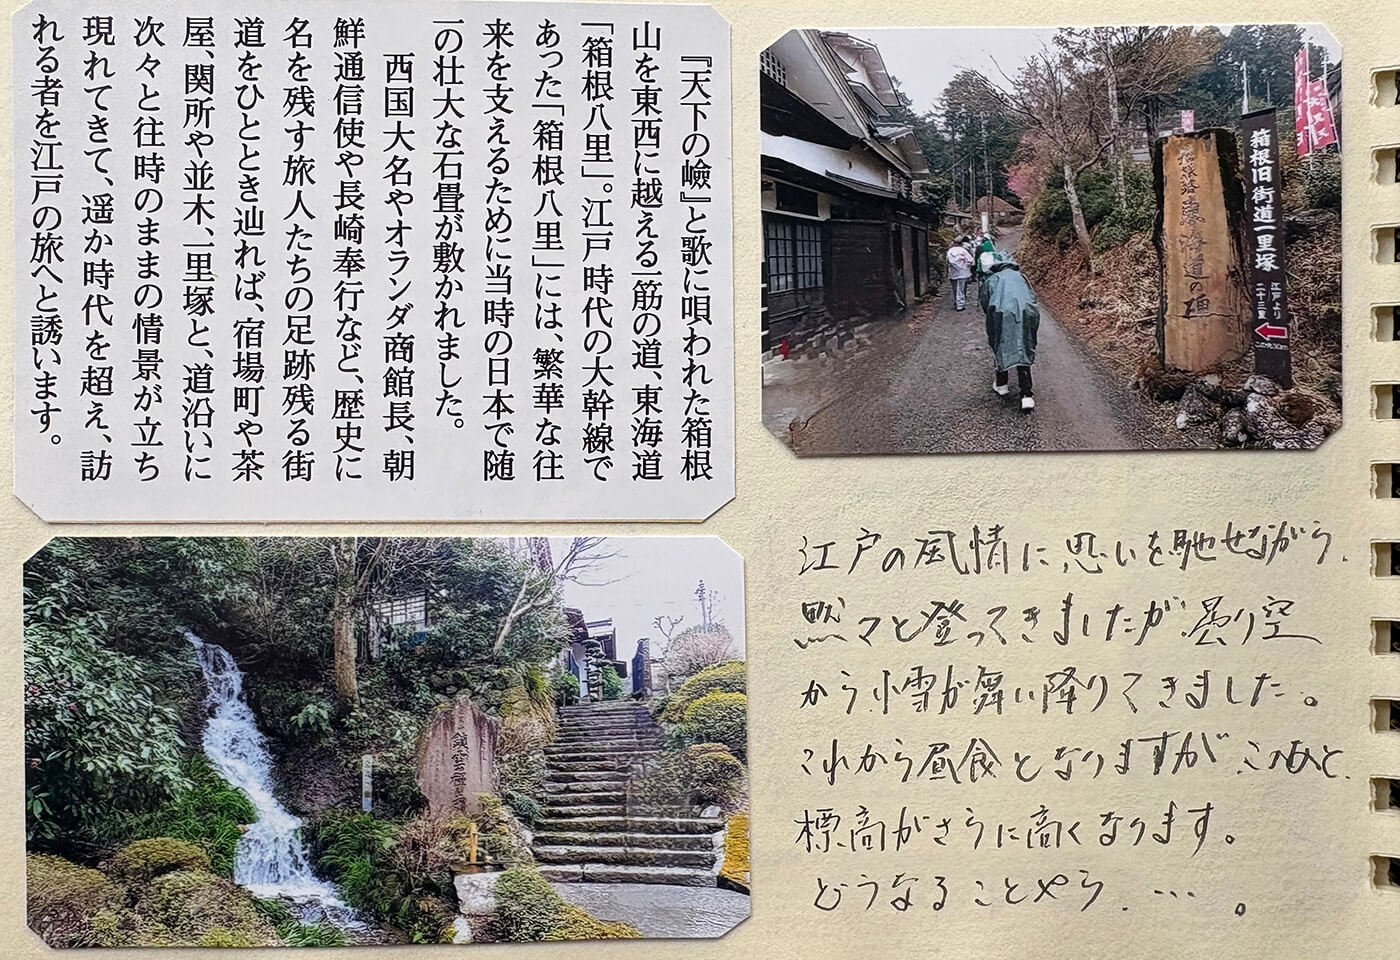 『天下の嶮』と歌に唄われた箱根
山を東西に越える一筋の道、東海道
「箱根八里」。江戸時代の大幹線で
あった「箱根八里」には、繁華な往
来を支えるために当時の日本で随
一の壮大な石畳が敷かれました。
西国大名やオランダ商館長、朝
鮮通信使や長崎奉行など、歴史に
名を残す旅人たちの足跡残る街
道をひととき辿れば、宿場町や茶
屋、関所や並木、一里塚と、道沿いに
次々と往時のままの情景が立ち
現れてきて、遥か時代を超え、訪
れる者を江戸の旅へと誘います。
箱根旧街道一里塚
江戸より
二十三里
この先30m
江戸の風情に思いを馳せながら、
黙々と登ってきましたが曇り空
から小雪が舞い降りてきました。
これから昼食となりますが このあと、
標高がさらに高くなります。
どうなることやら、…。